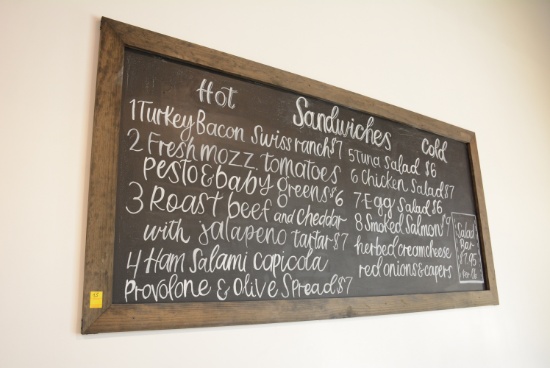 Hot
Sandwiches
Cold
1 Turkey Bacon Swiss ranch $7
2 Fresh mozz. tomatoes
pesto & baby greens $6
3 Roast beef and cheddar
with jalapeno tartar $7
4 Ham Salami capicola
Provolone & Olive Spread $7
5 Tuna Salad $6
6 Chicken Salad $7
7 Egg Salad $6
8 Smoked Salmon $7
herbed creamcheese
red onions & capers
Salad
Bar
$7.95